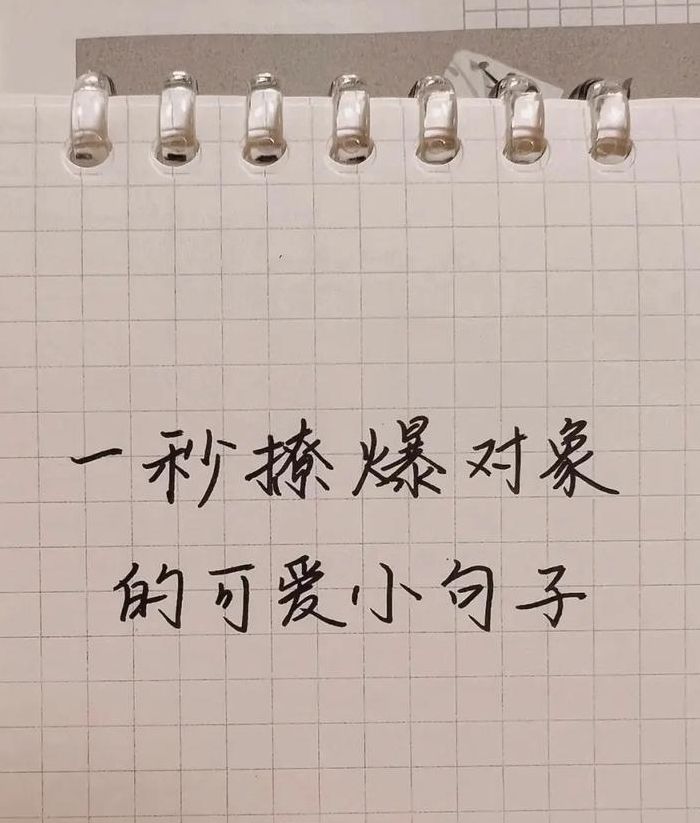 一秒撩爆对象
的可爱小句子